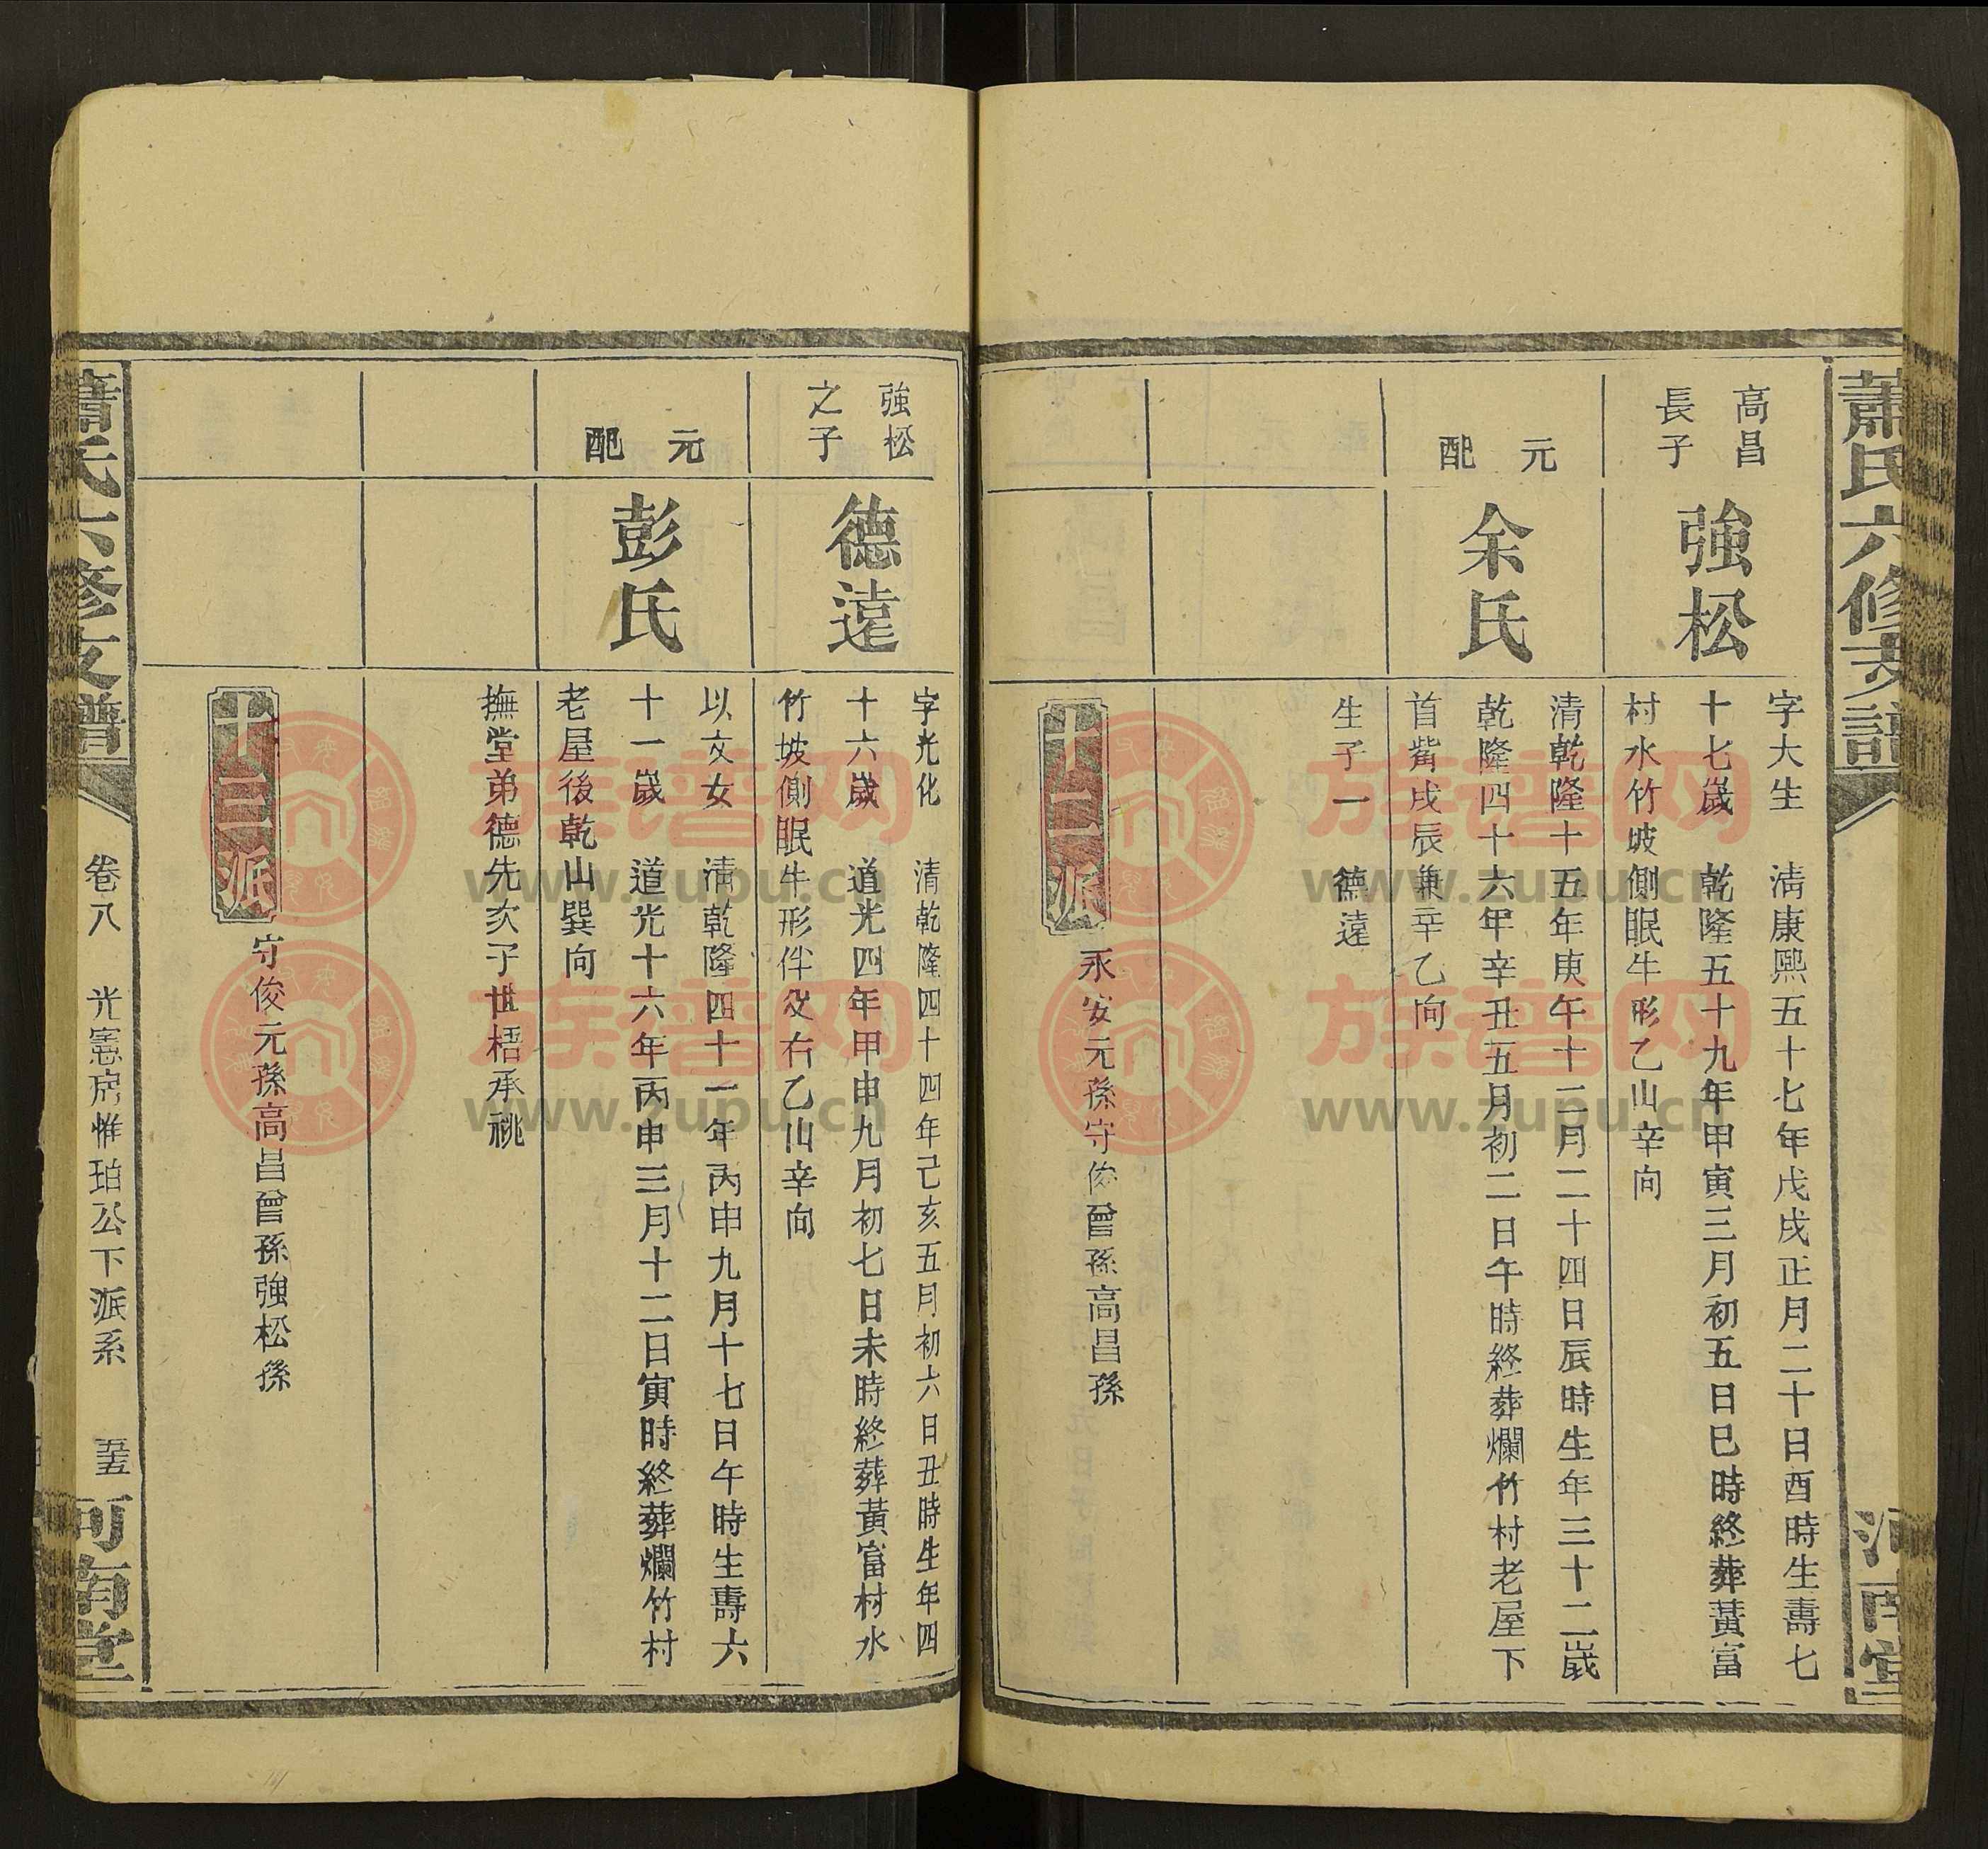 蕭氏六修支譜
河南堂
高昌
長子
強松
字大生 清康熙五十七年戊戌正月二十日酉時生壽七
十七歲 乾隆五十九年甲寅三月初五日巳時終葬黃富
村水竹坡側眠牛形乙山辛向
元配
余氏
清乾隆十五年庚午十二月二十四日辰時生年三十二歲
乾隆四十六年辛丑五月初二日午時終葬爛竹村老屋下
首嘴戌辰兼辛乙向
生子一 德遠
十二派
永安元孫守俊曾孫高昌孫
強松
之子
德遠
字光化 清乾隆四十四年己亥五月初六日丑時生年四
十六歲 道光四年甲申九月初七日未時終葬黃富村水
竹坡側眠牛形伴父右乙山辛向
元配
彭氏
以文女 清乾隆四十一年丙申九月十七日午時生壽六
十一歲 道光十六年丙申三月十二日寅時終葬爛竹村
老屋後乾山巽向
撫堂弟德先次子世梧承祧
十三派
守俊元孫高昌曾孫強松孫
蕭氏六修支譜
卷八 光憲房惟珀公下派系 五五
河南堂
族谱网
www.zupu.cn
族谱网
www.zupu.cn
族谱网
www.zupu.cn
族谱网
www.zupu.cn